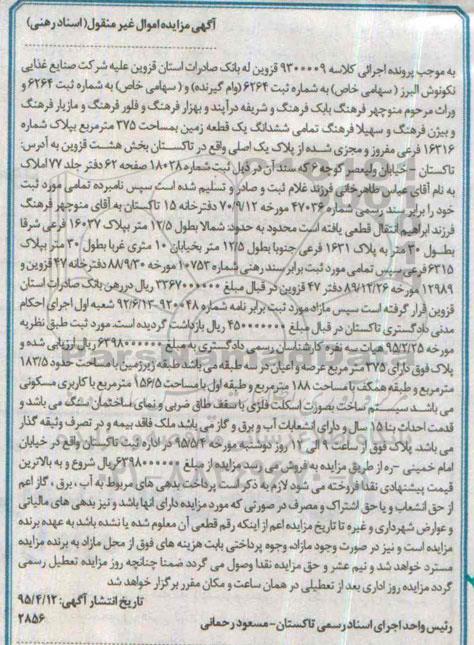 آگهی مزایده اموال غیر منقول (اسناد رهنی)
به موجب پرونده اجرائی کلاسه ۹۳۰۰۰۰۹ قزوین له بانک صادرات استان قزوین علیه شرکت صنایع غذایی
نکونوش البرز (سهامی خاص) به شماره ثبت ۶۲۶۴ (وام گیرنده) و (سهامی خاص) به شماره ثبت ۶۲۶۴ و
وراث مرحوم منوچهر فرهنگ بابک فرهنگ و شریفه درآیند و بهزار فرهنگ و فلور فرهنگ و مازیار فرهنگ
و بیژن فرهنگ و سهیلا فرهنگ تمامی ششدانگ یک قطعه زمین بمساحت ۳۷۵ مترمربع بپلاک شماره
۱۶۳۱۶ فرعی مفروز و مجزی شده از پلاک یک اصلی واقع در تاکستان بخش هشت قزوین به آدرس:
تاکستان - خیابان ولیعصر کوچه ۶ که سند آن در ذیل ثبت شماره ۱۸۰۲۸ صفحه ۶۲ دفتر جلد ۷۷ املاک
به نام آقای عباس طاهرخانی فرزند غلام ثبت و صادر و تسلیم شده است سپس نامبرده تمامی مورد ثبت
خود را برابر سند رسمی شماره ۴۷۰۳۶ مورخه ۷۰/۹/۱۲ دفترخانه ۱۵ تاکستان به آقای منوچهر فرهنگ
فرزند ابراهیم انتقال قطعی یافته است محدود به حدود: شمالا بطول ۱۲/۵ متر بپلاک ۱۶۰۳۷ فرعی شرقا
بطول ۳۰ متر به پلاک ۱۶۳۱ فرعی جنوبا بطول ۱۲/۵ متر بخیابان ۱۰ متری غربا بطول ۳۰ متر بپلاک
۶۳۱۵ فرعی سپس تمامی مورد ثبت برابر سند رهنی شماره ۱۰۷۵۳ مورخه ۸۸/۹/۳۰ دفترخانه ۴۷ قزوین و
۱۲۹۸۹ مورخه ۸۹/۱۲/۲۶ دفتر ۴۷ قزوین در قبال مبلغ ۳۳۶۷۰۰۰۰۰۰ ریال در رهن بانک صادرات استان
قزوین قرار گرفته است سپس مازاد مورد ثبت برابر نامه شماره ۹۲۰۰۴۸-۹۲/۶/۱۳ شعبه اول اجرای احکام
مدنی دادگستری تاکستان در قبال مبلغ ۴۵۰۰۰۰۰۰۰ ریال بازداشت گردیده است. مورد ثبت طبق نظریه
مورخه ۹۵/۲/۲۵ هیات سه نفره کارشناسان رسمی دادگستری به مبلغ ۶۳۹۸۰۰۰۰۰۰ ریال ارزیابی شده و
پلاک فوق دارای ۳۷۵ متر مربع عرصه و اعیان در سه طبقه می باشد طبقه زیرزمین با مساحت حدود ۱۸۳/۵
مترمربع و طبقه همکف با مساحت ۱۸۸ مترمربع و طبقه اول با مساحت ۱۵۶/۵ مترمربع با کاربری مسکونی
می باشد سیستم ساخت بصورت اسکلت فلزی با سقف طاق ضربی و نمای ساختمان سنگ می باشد و
قدمت احداث بنا ۱۵ سال و دارای انشعابات آب و برق و گاز می باشد ملک فاقد بیمه و در تصرف وثیقه گذار
می باشد. پلاک فوق از ساعت ۹ الی ۱۲ روز دوشنبه مورخه ۹۵/۵/۴ در اداره ثبت تاکستان واقع در خیابان
امام خمینی -ره از طریق مزایده به فروش می رسد مزایده از مبلغ ۶۳۹۸۰۰۰۰۰۰ ریال شروع و به بالاترین
قیمت پیشنهادی نقدا فروخته می شود لازم به ذکر است پرداخت بدهی های مربوط به آب، برق، گاز اعم
از حق انشعاب و یا حق اشتراک و مصرف در صورتی که مورد مزایده دارای آنها باشد و نیز بدهی های مالیاتی
و عوارض شهرداری و غیره تا تاریخ مزایده اعم از اینکه رقم قطعی آن معلوم شده یا نشده باشد به عهده برنده
مزایده است و نیز در صورت وجود مازاد، وجوه پرداختی بابت هزینه های فوق از محل مازاد به برنده مزایده
مسترد خواهد شد و نیم عشر و حق مزایده نقدا وصول می گردد ضمنا چنانچه روز مزایده تعطیل رسمی
گردد مزایده روز اداری بعد از تعطیلی در همان ساعت و مکان مقرر برگزار خواهد شد
تاریخ انتشار آگهی: ۹۵/۴/۱۲
رئیس واحد اجرای اسناد رسمی تاکستان - مسعود رحمانی
۲۸۵۶
ParsNamadData